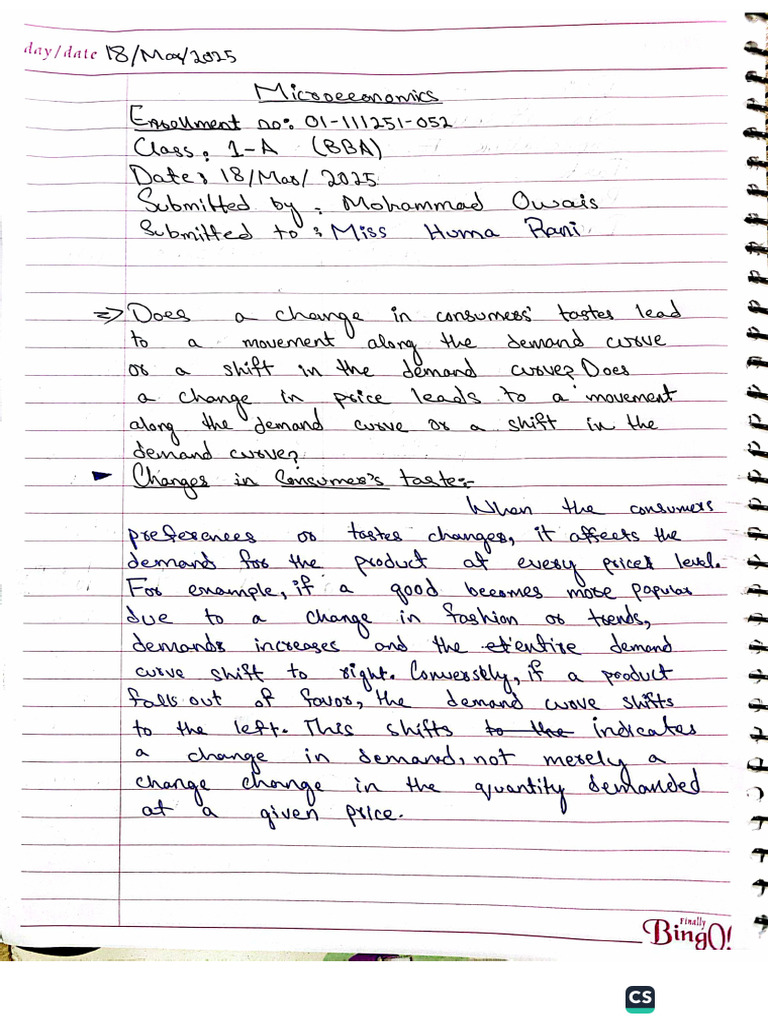 day/date 18/Mar/2025
Microeconomics
Enrollment no: 01-111251-052
Class: 1-A (BBA)
Date: 18/Mar/2025
Submitted by: Mohammad Owais
Submitted to: Miss Huma Rani
=> Does a change in consumers' tastes lead
to a movement along the demand curve
or a shift in the demand curve? Does
a change in price leads to a movement
along the demand curve or a shift in the
demand curve?
Changes in Consumer's taste:-
When the consumers
preferences or tastes changes, it affects the
demand for the product at every price level.
For example, if a good becomes more popular
due to a change in fashion or trends,
demands increases and the entire demand
curve shift to right. Conversely, if a product
falls out of favor, the demand curve shifts
to the left. This shifts to the indicates
a change in demand, not merely a
change change in the quantity demanded
at a given price.
Finally
BingO!
CS